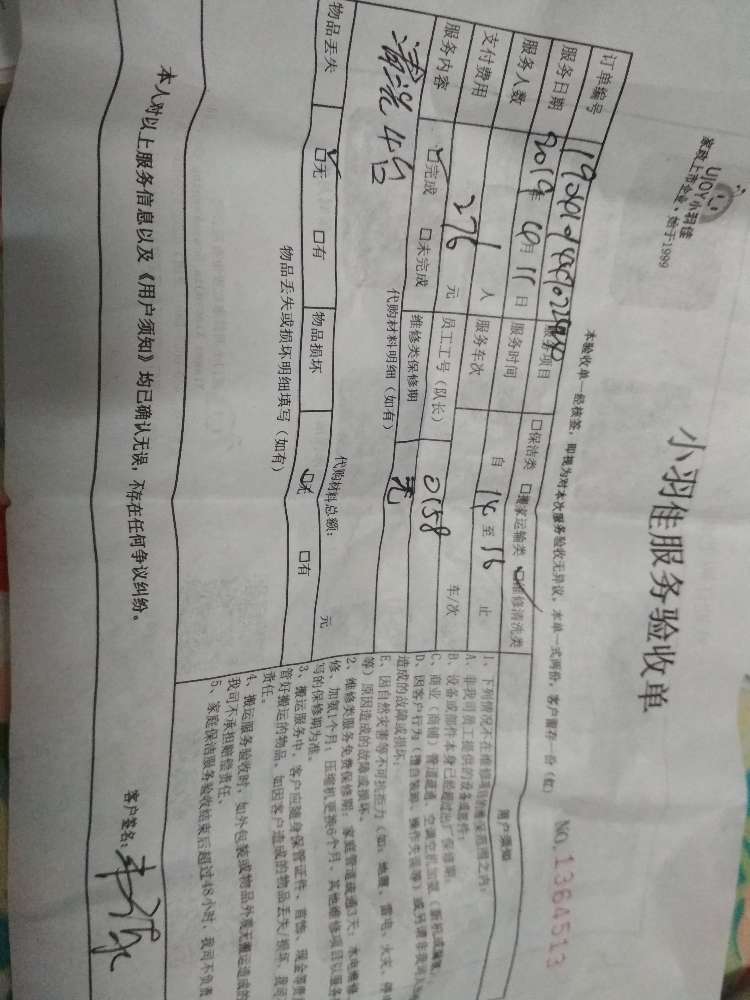 UJOY小羽佳
家政上市企业·始于1999
小羽佳服务验收单
本验收单一经核签，即视为对本次服务验收无异议。本单一式两份，客户留存一份（红）
NO.1364513
订单编号
服务项目 □保洁类 □搬家运输类 ☑维修清洗类
服务日期 2019年 09月 11日 服务时间 自 14 至 16 止
服务人数 1 人 服务车次 车/次
支付费用 276 元 员工工号（队长） 0158
服务内容 ☑完成 □未完成 维修类保修期 无
清洗4台
代购材料明细（如有）
代购材料总额： 元
物品丢失 ☑无 □有 物品损坏 ☑无 □有
物品丢失或损坏明细填写（如有）
用户须知
1、下列情况不在维修项目的维保范围之内：
A、非我司员工提供的设备或配件；
B、设备或部件本身已经超过出厂保修期；
C、商业（商铺）管道疏通、空调空机加氨（新机或漏氨
D、因客户行为（擅自装卸、操作失误等）或另请非我司人
造成的故障或损坏；
E、因自然灾害等不可抗拒力（如：地震、雷电、火灾、停电
等）原因造成的故障或损坏。
2、维修类服务免费保修期：家庭管道疏通3天；水电维修
修、加氨1个月；压缩机更换6个月，其他维修项目以服务
写的保修期为准。
3、搬运服务中，客户应随身保管证件、首饰、现金等贵
管好搬运的物品。如因客户造成的物品丢失/损坏，我司
责任。
4、搬运服务验收时，如外包装或物品外观无搬运造成的
我司不承担赔偿责任。
5、家庭保洁服务验收结束后超过48小时，我司不负责
本人对以上服务信息以及《用户须知》均已确认无误，不存在任何争议纠纷。
客户签名：